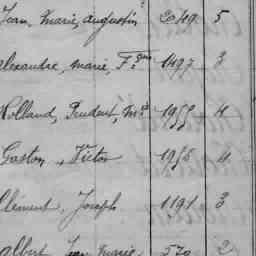 Jean, Marie, Augustin 2049 5
Alexandre, Marie, F.çois 1497 3
Rolland, Prudent, M.ie 1955 4
Gaston, Victor 1958 4
Clément, Joseph 1191 3
Albert, Jean Marie 570 2